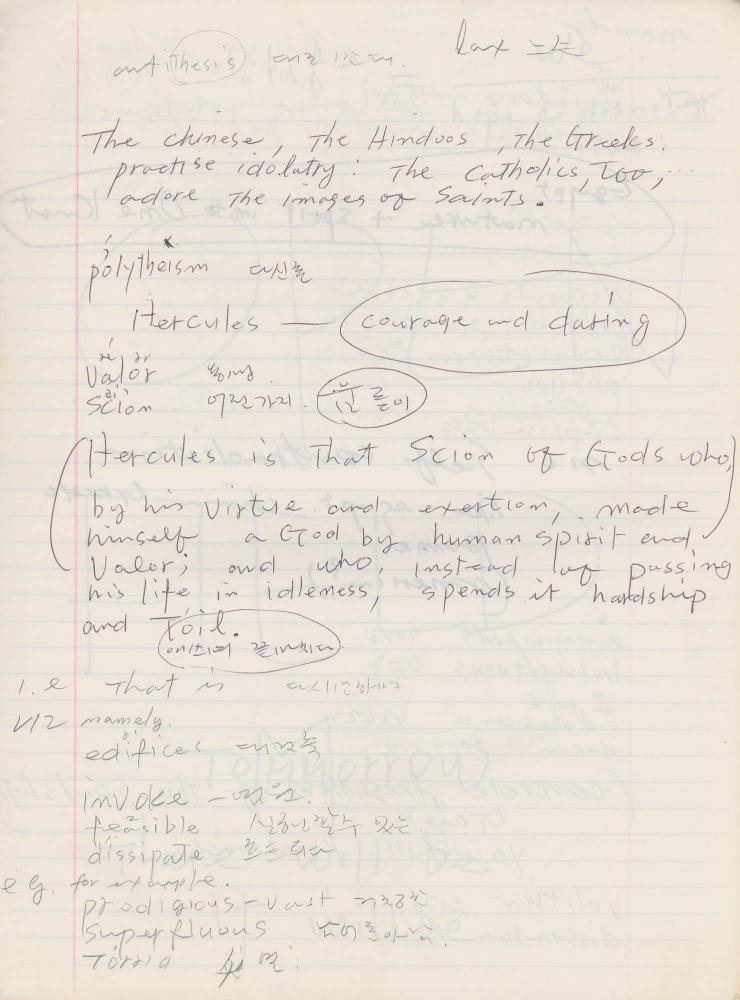 antithesis 대조 반대. lax 느슨
The Chinese, The Hindoos, The Greeks.
practise idolatry: The Catholics, Too, ...
adore The images of Saints.
polytheism 다신론
Hercules — courage and daring
Valor 용맹.
Scion 어린가지.
Hercules is That Scion of Gods who,
by his virtue and exertion, made
himself a God by human spirit and
Valor; and who, instead of passing
his life in idleness, spends it hardship
and Toil.
i.e That is 다시말하면
viz namely.
edifices 대건축
invoke —
feasible 실현할수 있는
dissipate
e g. for example.
prodigious - vast 거창한
superfluous